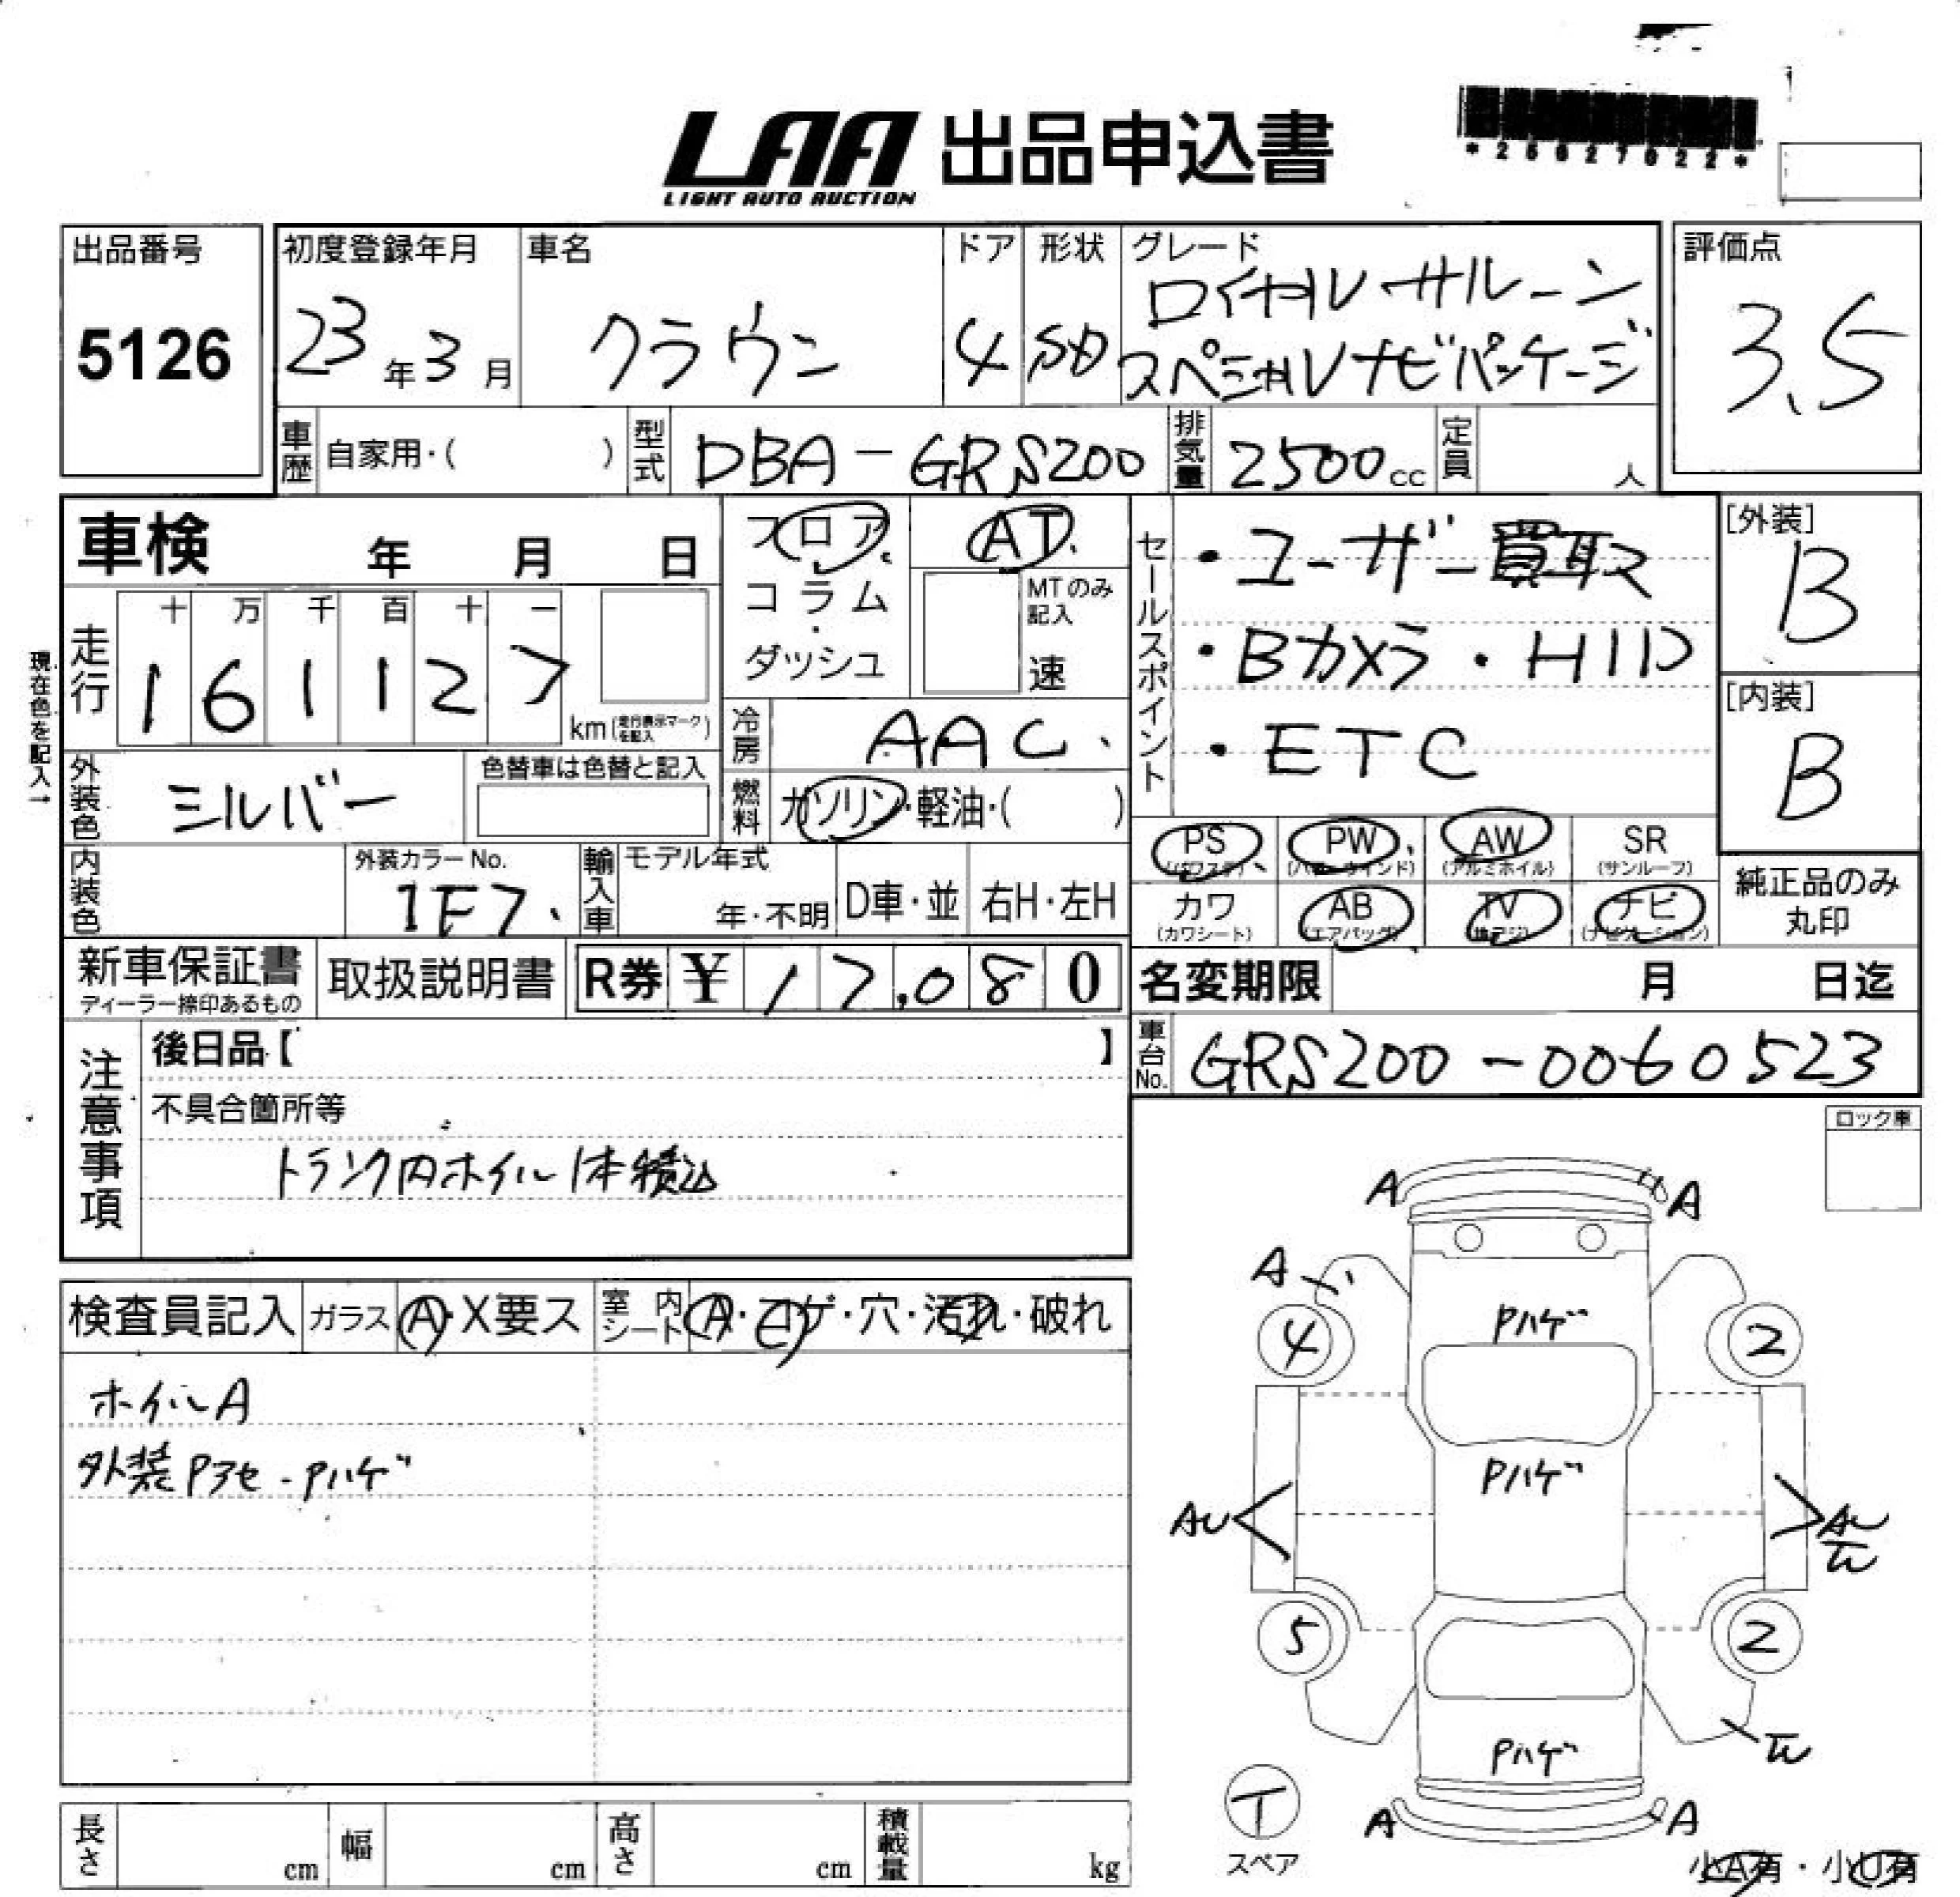 LAA 出品申込書
LIGHT AUTO AUCTION
出品番号
5126
初度登録年月
23年3月
車名
クラウン
ドア
4
形状
SD
グレード
ロイヤルサルーン
スペシャルナビパッケージ
評価点
3.5
車歴 自家用・( )
型式 DBA-GRS200
排気量 2500cc
定員 人
車検 年 月 日
フロア
・
コラム
・
ダッシュ
AT
MTのみ
記入
速
セールスポイント
・ユーザー買取
・Bカメラ・HID
・ETC
[外装]
B
[内装]
B
現在色を記入→
走行
十 万 千 百 十 一
1 6 1 1 2 7
km(走行表示マークを記入)
冷房 AAC.
外装色 シルバー
色替車は色替と記入
燃料 ガソリン・軽油・( )
PS PW AW SR
(パワステ) (パワーウインド) (アルミホイル) (サンルーフ)
内装色
外装カラーNo.
1F7.
輸入車
モデル年式
年・不明
D車・並
右H・左H
カワ AB TV ナビ
(カワシート) (エアバッグ) (地デジ) (ナビゲーション)
純正品のみ
丸印
新車保証書
ディーラー捺印あるもの
取扱説明書
R券 ¥ 17,080
名変期限 月 日迄
車台No. GRS200-0060523
注意事項
後日品【 】
不具合箇所等
トランク内ホイル1本積込
ロック車
検査員記入
ガラス A・X要ス
室内シート A・コゲ・穴・汚れ・破れ
ホイルA
外装Pアセ-Pハゲ
A A
A
Pハゲ
4 2
Pハゲ
AU
AU
5 2
Pハゲ
T
スペア
A A
小A有・小U有
長さ cm
幅 cm
高さ cm
積載量 kg